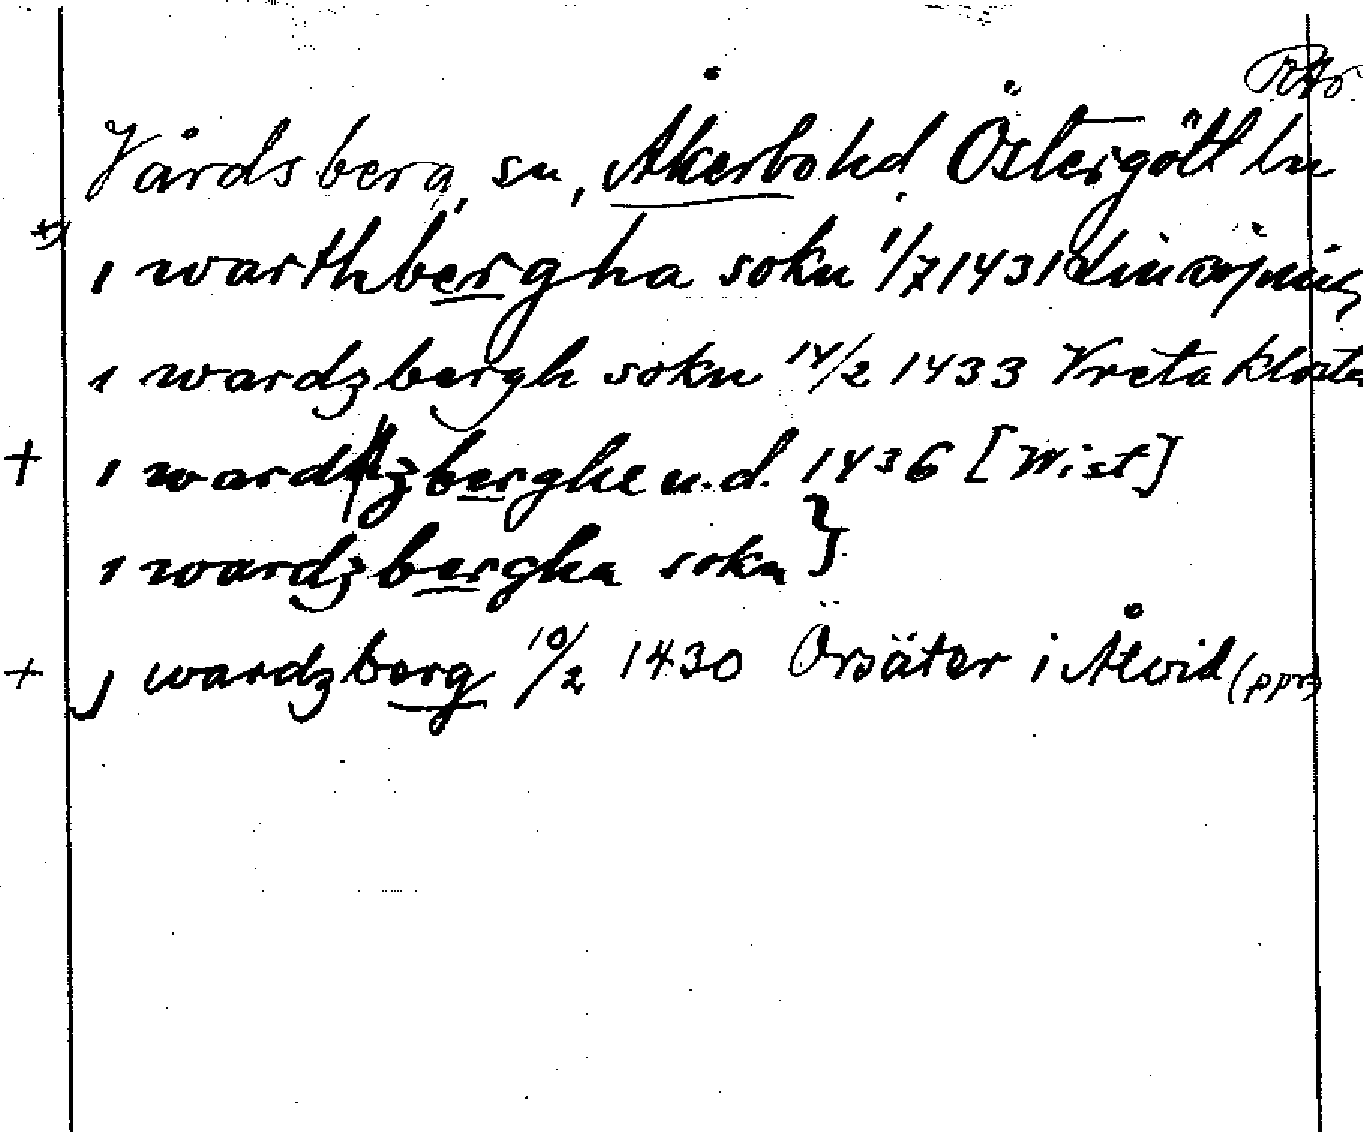 RAp
Vårdsberg, sn, Åkerbo hd, Östergötl ln
+) i warthbergha sokn 1/7 1431 Linköping
i wardzbergh sokn 14/2 1433 Vreta kloster
+ i wardzberghe u.d. 1436 [Wist]
i wardzbergha sokn }
+ j wardzberg 10/2 1430 Örsäter i Åtvid (ppr)